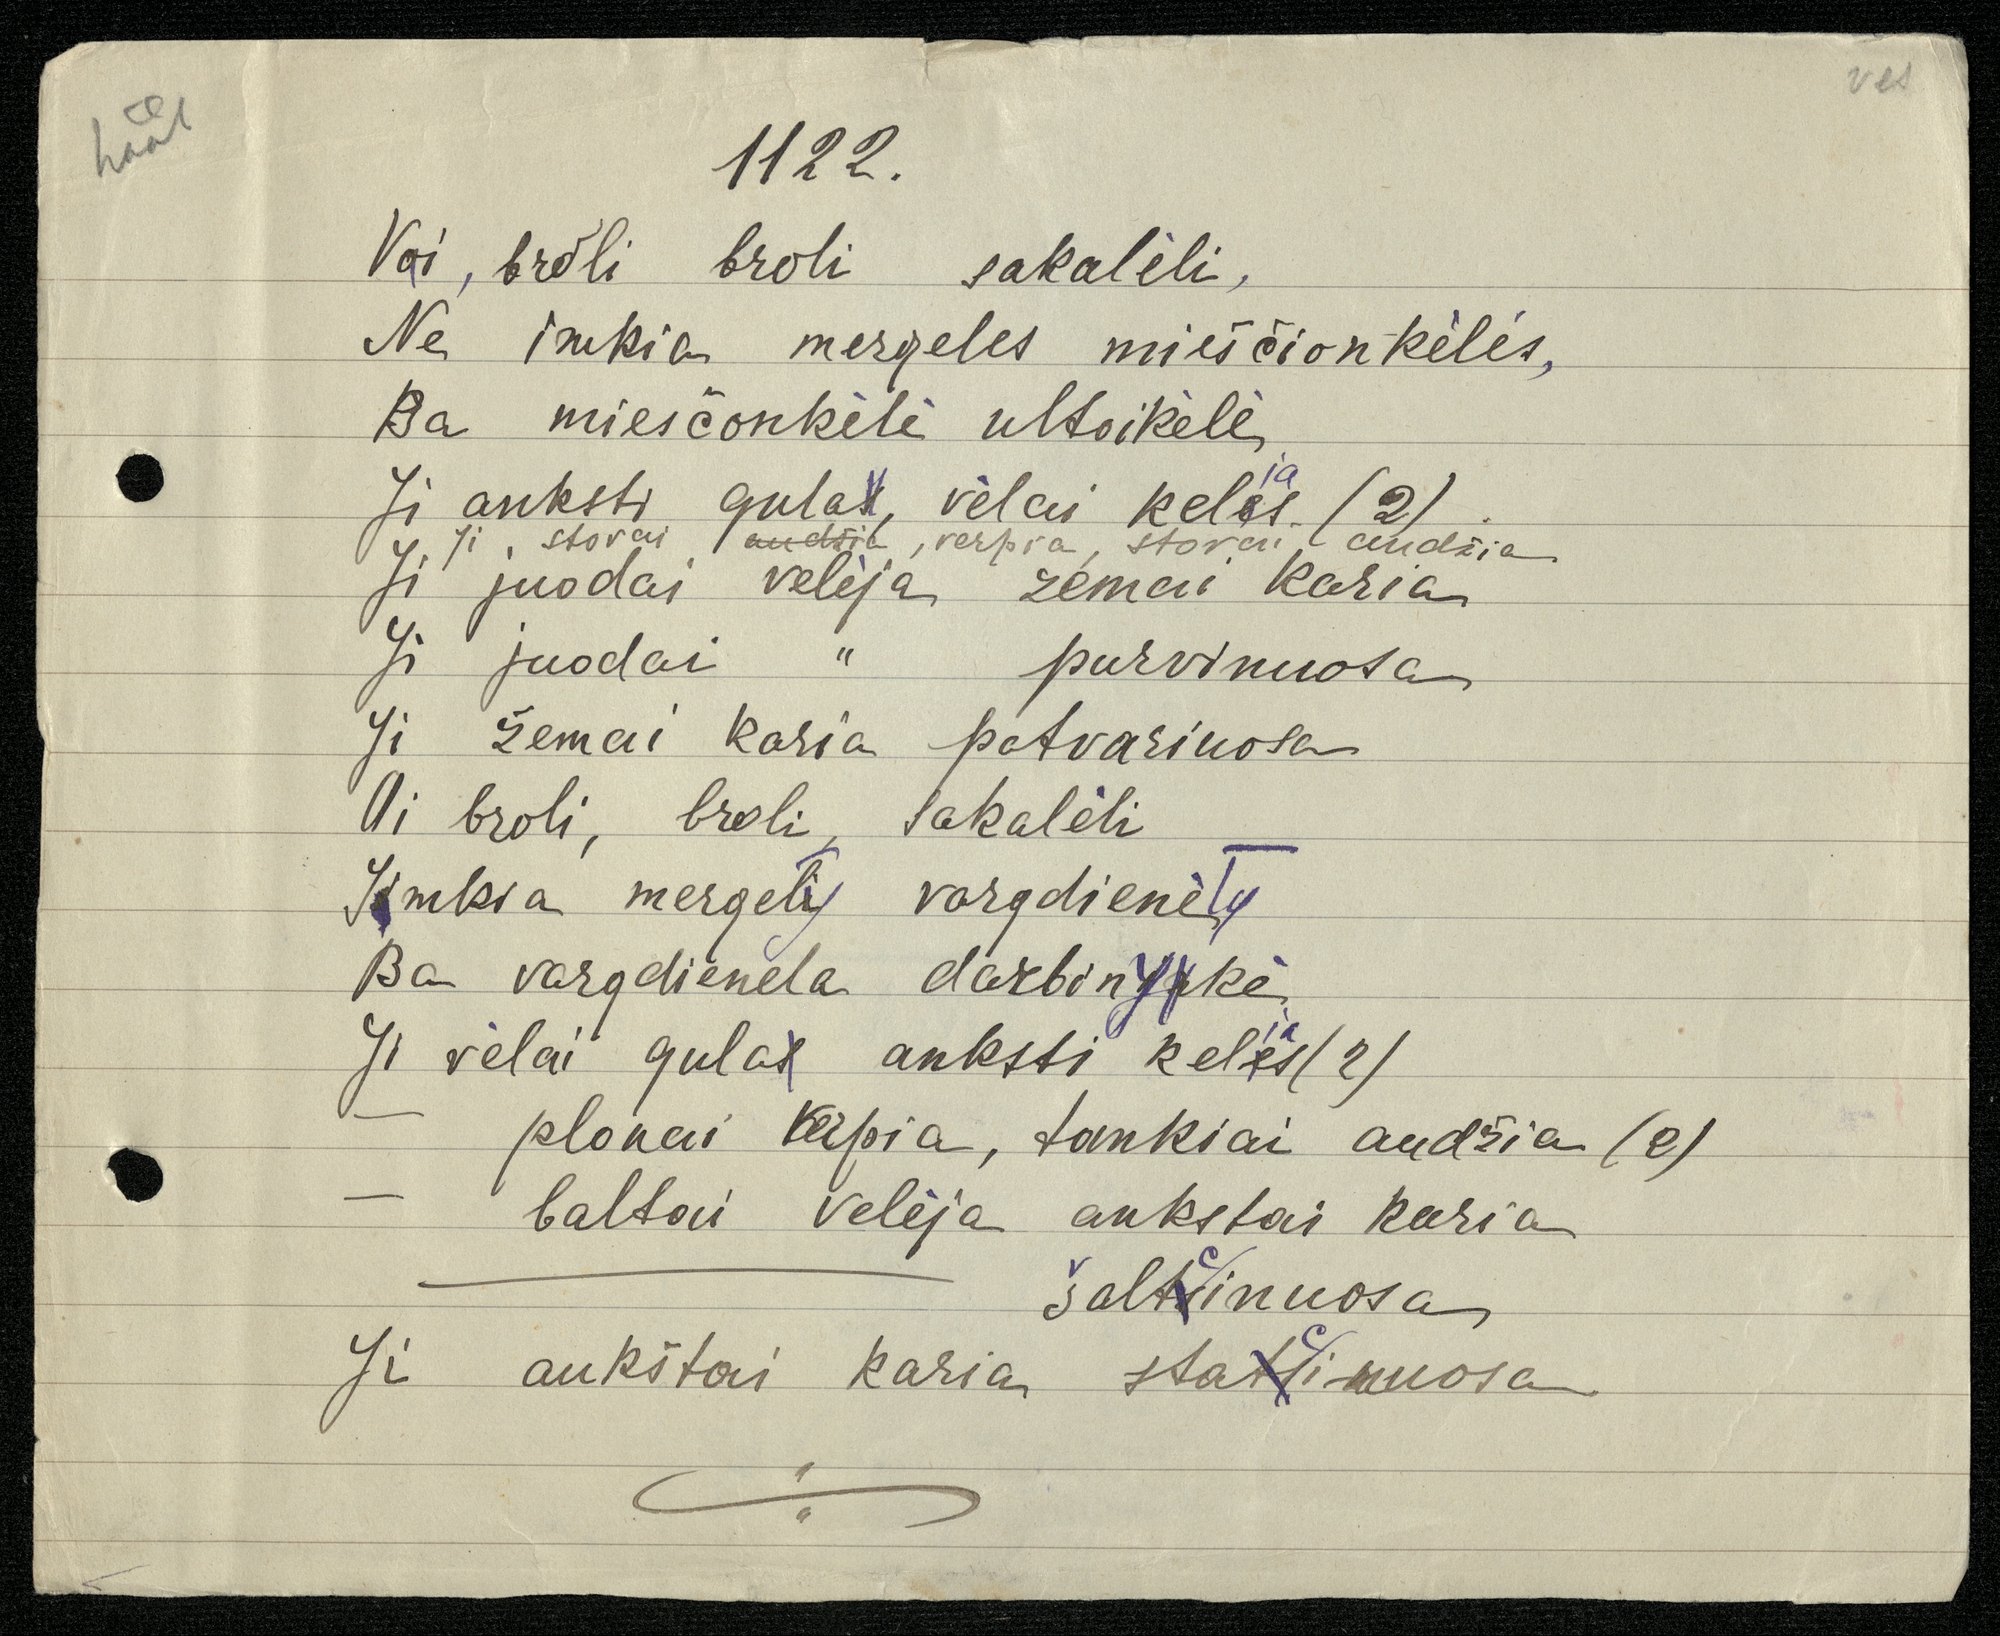 ves
1122.
Vai, broli broli sakalėli,
Ne imkia mergeles mieščionkėlės,
Ba miesčonkėlė ultoikėlė
Ji anksti gula, vėlai kelia (2)
Ji, stovai audžia, verpia, stovai audžia
Ji juodai velėja žemai karia
Ji juodai " purvinuosa
Ji žemai karia patvariuosa
Oi broli, broli, sakalėli
Imkia mergely vargdienėly
Ba vargdienela darbinykė
Ji vėlai gula anksti kelia (2)
— plonai verpia, tankiai audžia (2)
— baltai velėja aukstai karia
šalcinuosa
Ji aukštai karia stacinuosa